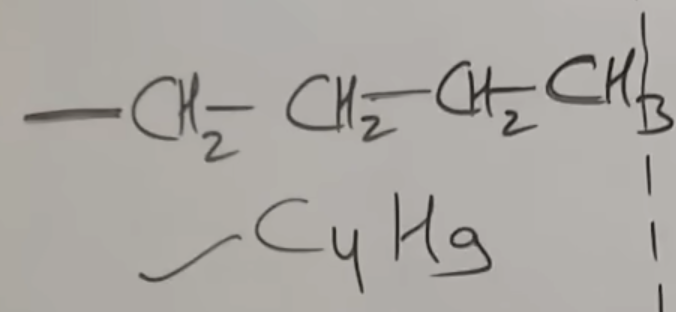 — CH₂ — CH₂ — CH₂ — CH₃
— C₄H₉